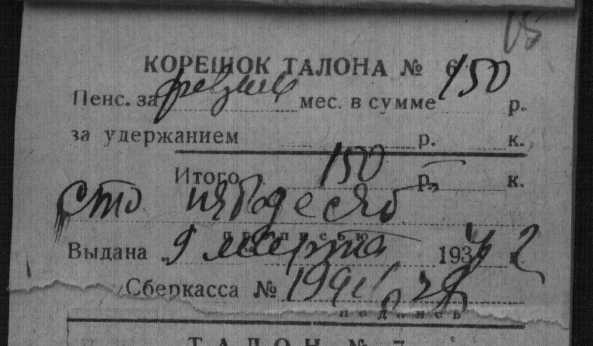 КОРЕШОК ТАЛОНА № 6
Пенс. за мес. в сумме 150 р.
за удержанием р. к.
Итого 150 р. к.
Сто пядесят
прописью
Выдана 9 марта 193 г
Сберкасса № 1994
подпись
ТАЛОН № 7